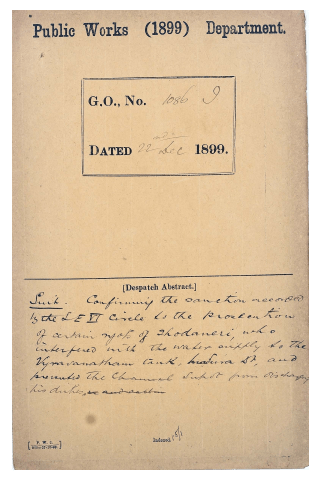 Public Works (1899) Department.
G.O., No. 1086 I
DATED 22 Dec 1899.
[Despatch Abstract.]
Suit. Confirming the sanction accorded
by the S.E. VI Circle to the prosecution
of certain ryots of Shodaneri, who
interfered with the water supply to the
tank, Madura Dt, and
prevented the Channel Supdt from discharging
his duties
Indexed